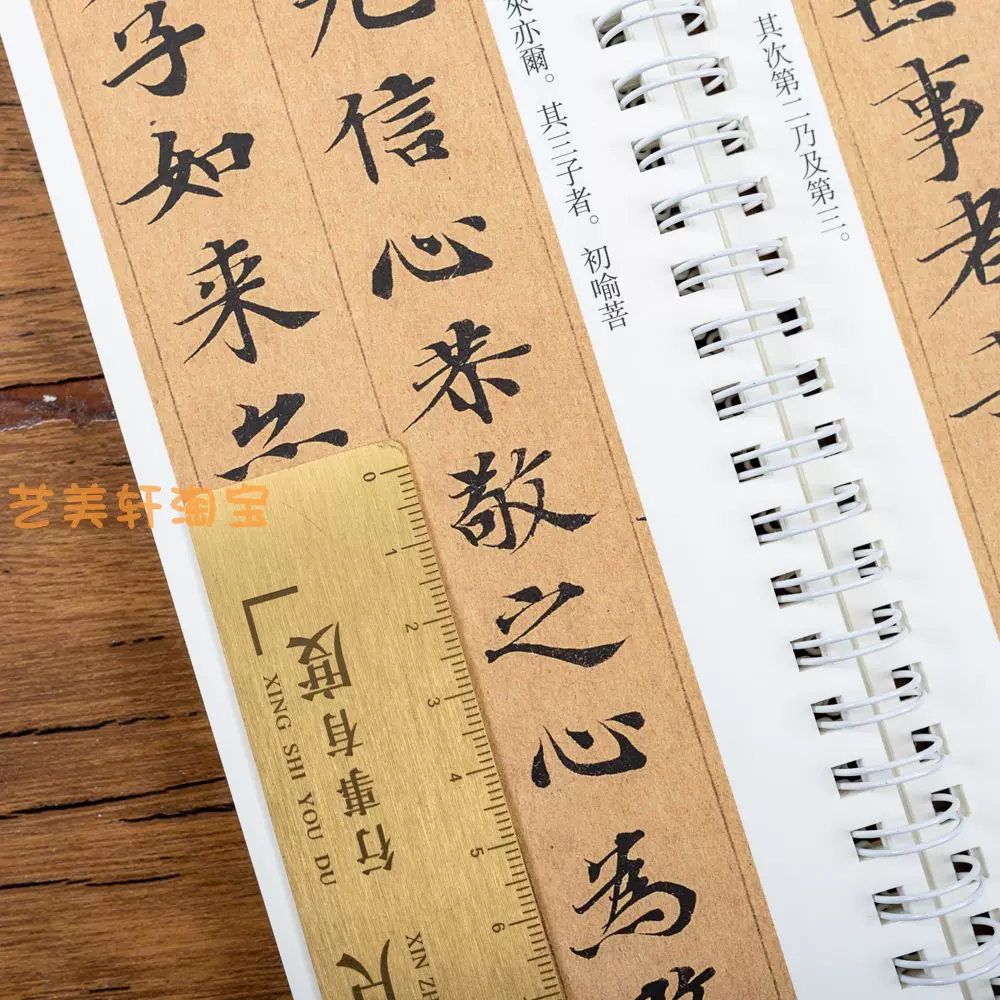 事者
其次第二乃及第三。
來亦爾。其三子者。初喻菩
信心恭敬之心為
子如来
艺美轩淘宝
0 1 2 3 4 5 6
行事有度
XING SHI YOU DU
XIN